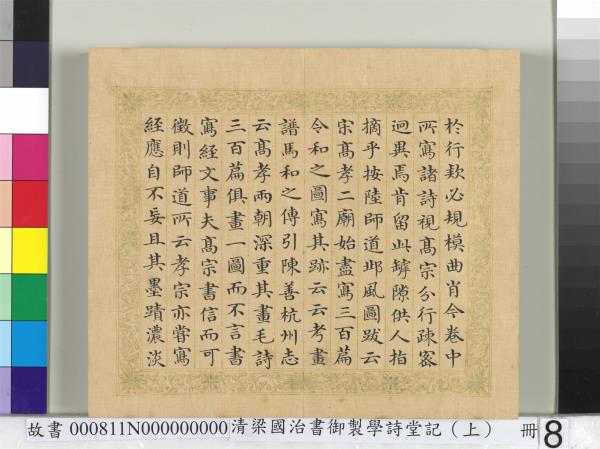 於行欵必規模曲肖今卷中
所寫諸詩視髙宗分行疎宻
迥異焉肯留此罅隙供人指
摘乎按陸師道邶風圖跋云
宋髙孝二廟始盡寫三百篇
令和之圖寫其跡云云考畫
譜馬和之傳引陳善杭州志
云髙孝兩朝深重其畫毛詩
三百篇俱畫一圖而不言書
寫經文事夫髙宗書信而可
徵則師道所云孝宗亦嘗寫
經應自不妄且其墨蹟濃淡
故書 000811N000000000 清梁國治書御製學詩堂記（上） 冊 8